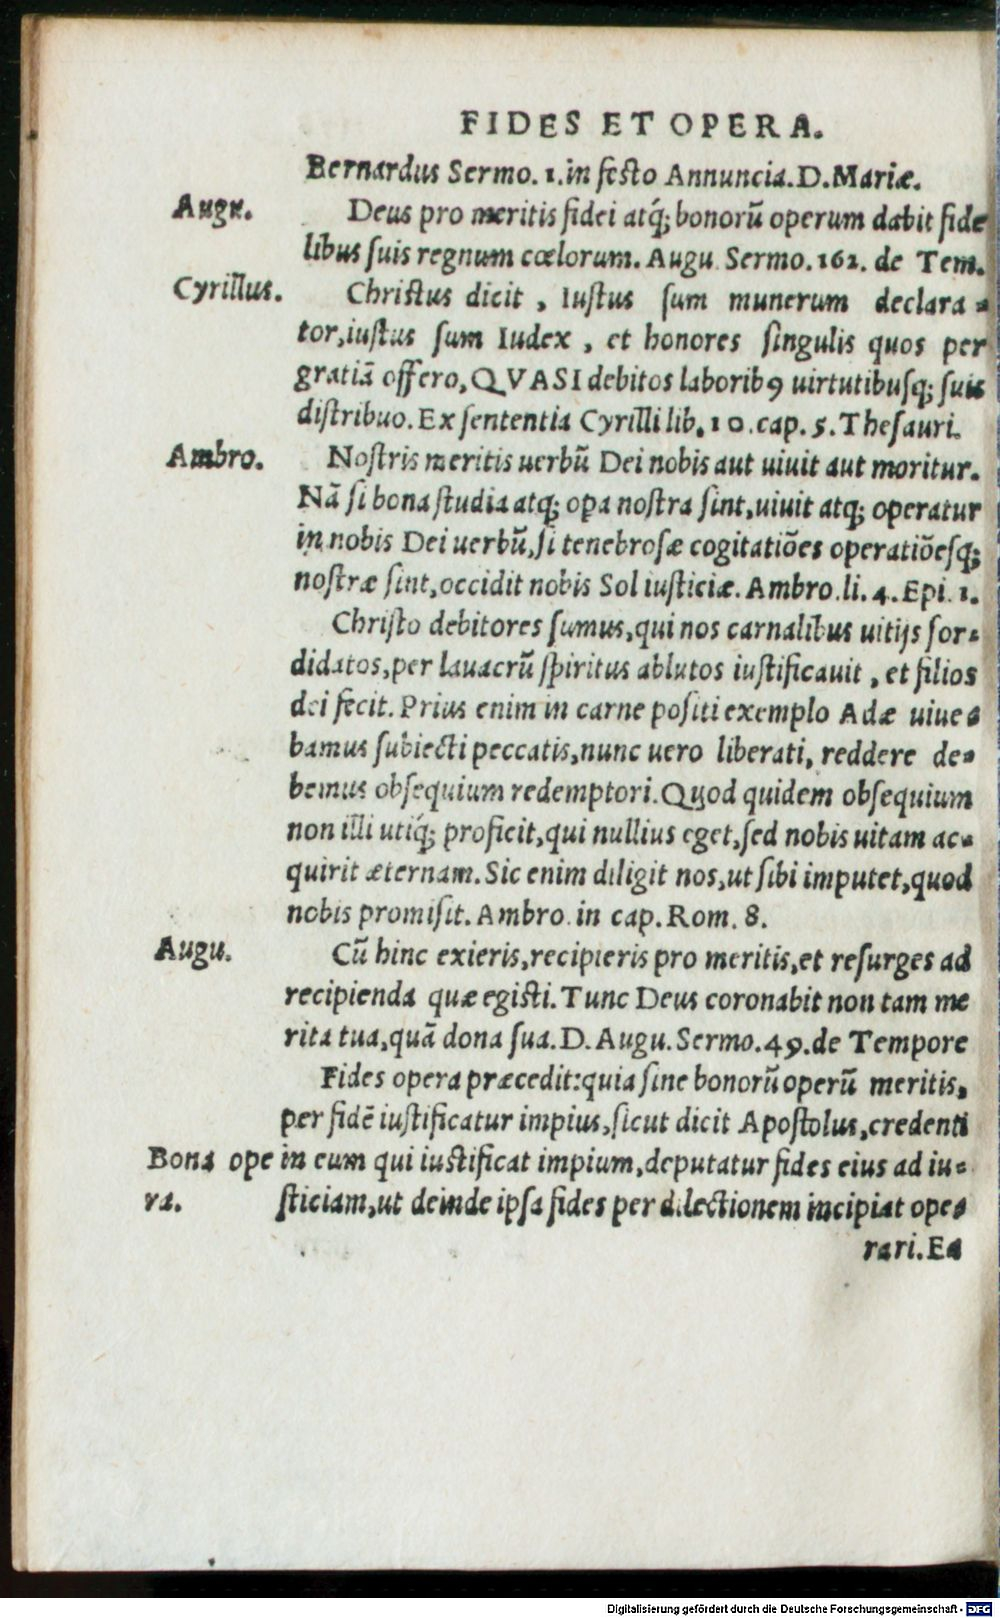 FIDES ET OPERA.
Bernardus Sermo. 1. in festo Annuncia. D. Mariæ.
Augu.
Deus pro meritis fidei atq́; bonorũ operum dabit fide
libus suis regnum cœlorum. Augu. Sermo. 162. de Tem.
Cyrillus.
Christus dicit, Iustus sum munerum declara-
tor, iustus sum Iudex, et honores singulis quos per
gratiã offero, QVASI debitos laborib9 uirtutibusq; suis
distribuo. Ex sententia Cyrilli lib. 10. cap. 5. Thesauri.
Ambro.
Nostris meritis uerbũ Dei nobis aut uiuit aut moritur.
Nã si bona studia atq; opa nostra sint, uiuit atq; operatur
in nobis Dei uerbũ, si tenebrosæ cogitatiões operatiõesq;
nostræ sint, occidit nobis Sol iusticiæ. Ambro. li. 4. Epi. 1.
Christo debitores sumus, qui nos carnalibus uitijs sor-
didatos, per lauacrũ spiritus ablutos iustificauit, et filios
dei fecit. Prius enim in carne positi exemplo Adæ uiue-
bamus subiecti peccatis, nunc uero liberati, reddere de-
bemus obsequium redemptori. Quod quidem obsequium
non illi utiq́; proficit, qui nullius eget, sed nobis uitam ac-
quirit æternam. Sic enim diligit nos, ut sibi imputet, quod
nobis promisit. Ambro. in cap. Rom. 8.
Augu.
Cũ hinc exieris, recipieris pro meritis, et resurges ad
recipienda quæ egisti. Tunc Deus coronabit non tam me
rita tua, quã dona sua. D. Augu. Sermo. 49. de Tempore
Fides opera præcedit: quia sine bonorũ operũ meritis,
per fidẽ iustificatur impius, sicut dicit Apostolus, credenti
Bona ope
in eum qui iustificat impium, deputatur fides eius ad iu-
ra.
sticiam, ut deinde ipsa fides per dilectionem incipiat ope-
rari. Ea
Digitalisierung gefördert durch die Deutsche Forschungsgemeinschaft - DFG